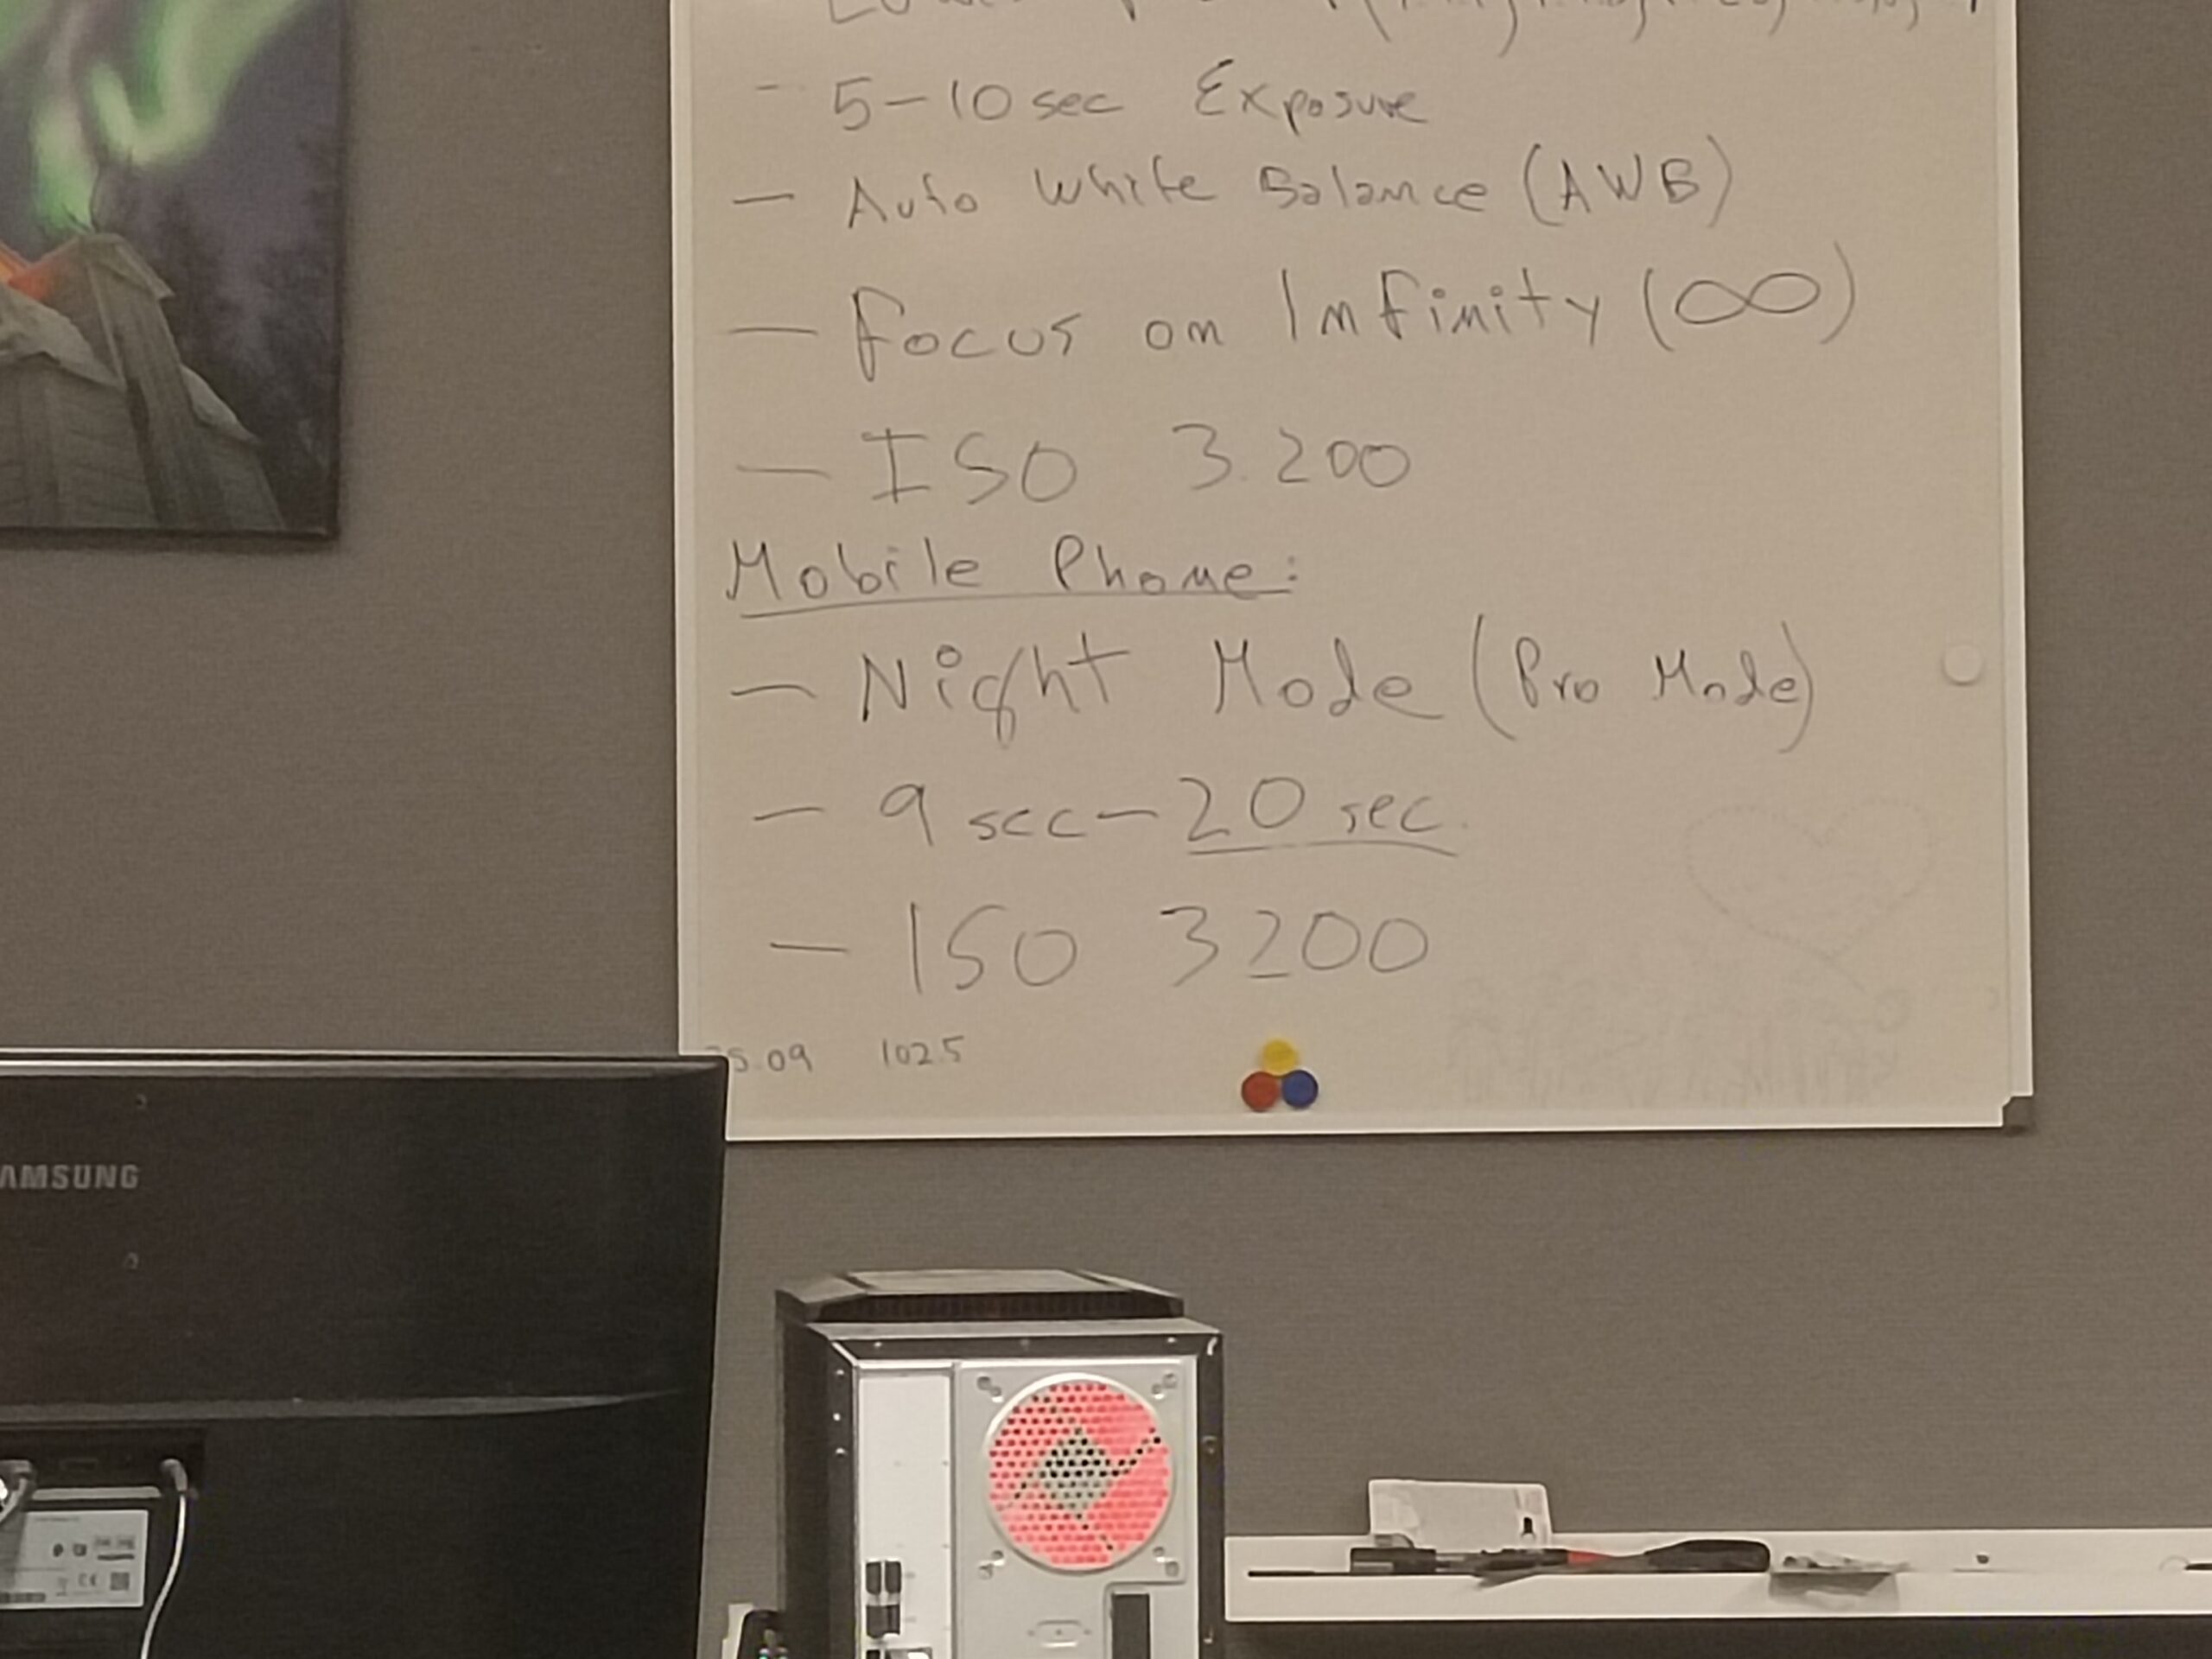 - 5-10 sec Exposure
- Auto White Balance (AWB)
- Focus on Infinity (∞)
- ISO 3.200
Mobile Phone:
- Night Mode (Pro Mode)
- 9 sec - 20 sec.
- ISO 3200
5.09 1025
AMSUNG